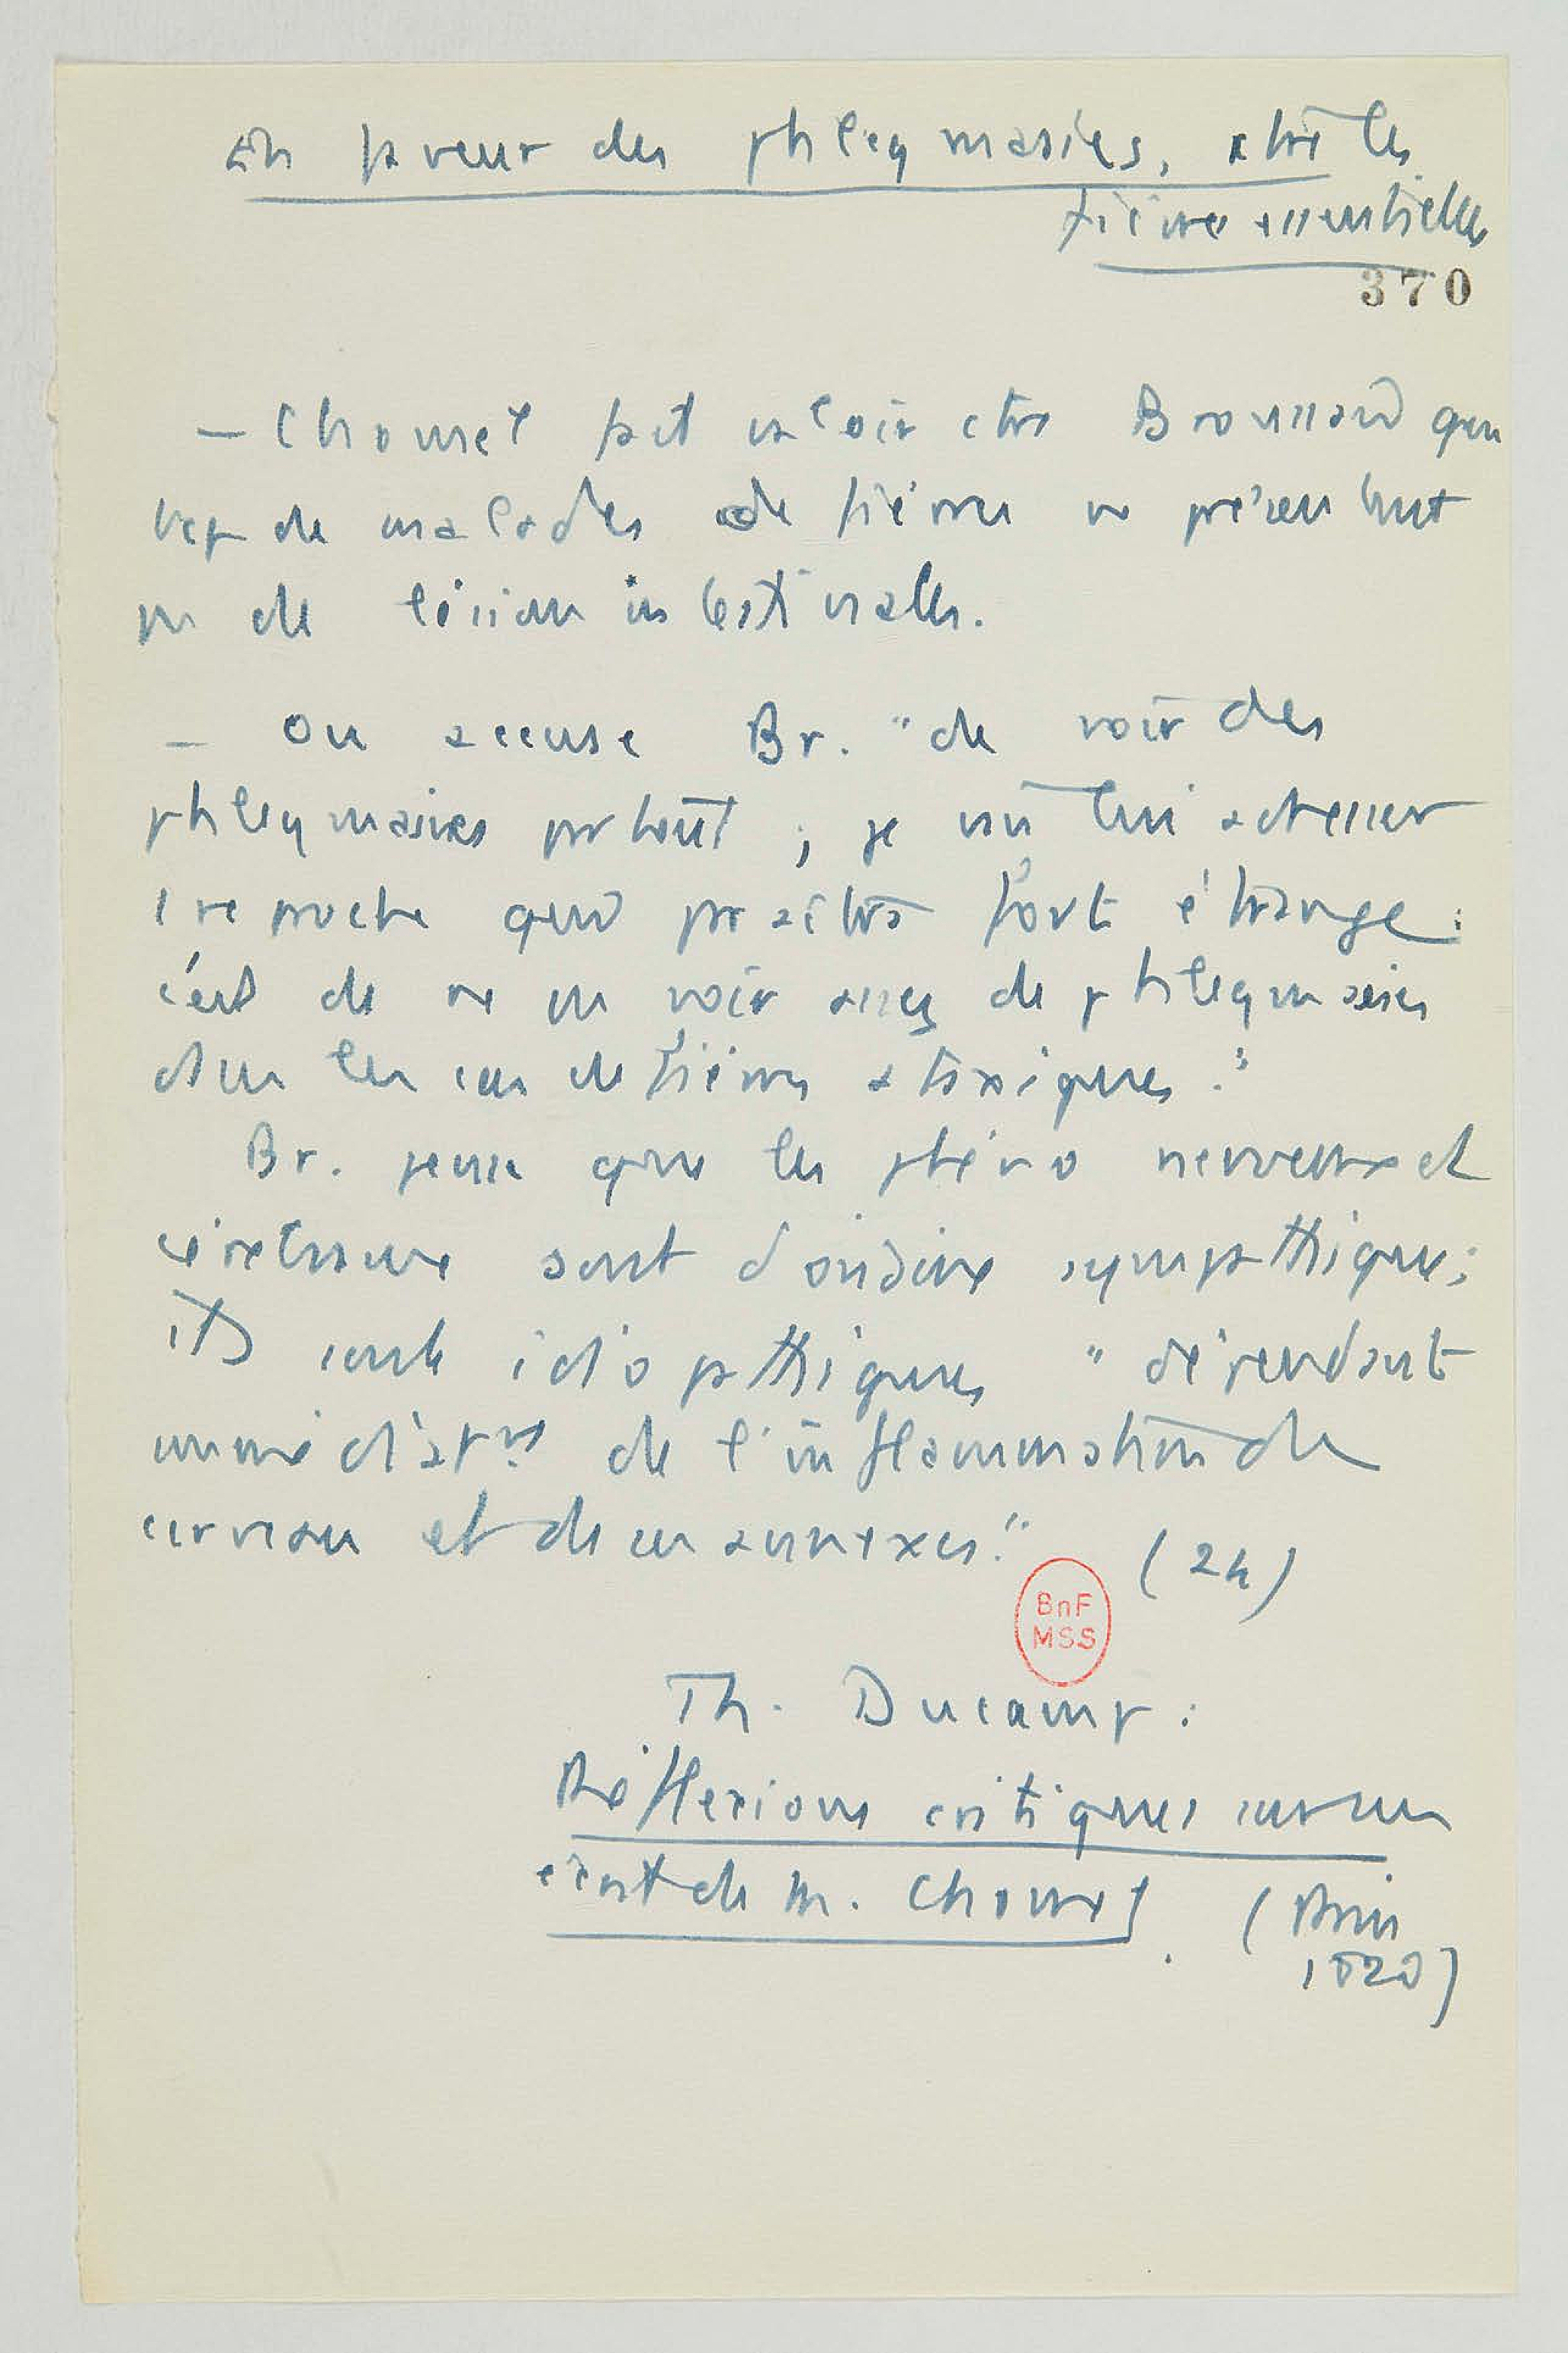 En faveur des phlegmasies, ctre les
fièvres essentielles
370
– Chomel fait valoir ctre Broussais que
bcp de malades de fièvres ne présentent
pas de lésions intestinales.
– On accuse Br. "de voir des
phlegmasies partout ; je vais lui adresser
1 reproche qui paraîtra fort étrange :
c'est de ne pas voir assez de phlegmasies
dans les cas de fièvres ataxiques."
Br. pense que les phéno nerveux et
cérébraux sont d'ordinaire sympathiques ;
ils sont idiopathiques "dépendant
immédiatmt de l'inflammation du
cerveau et de ses annexes." (24)
BnF
MSS
Th. Ducamp :
Réflexions critiques sur un
écrit de M. Chomel. (Paris
1820)